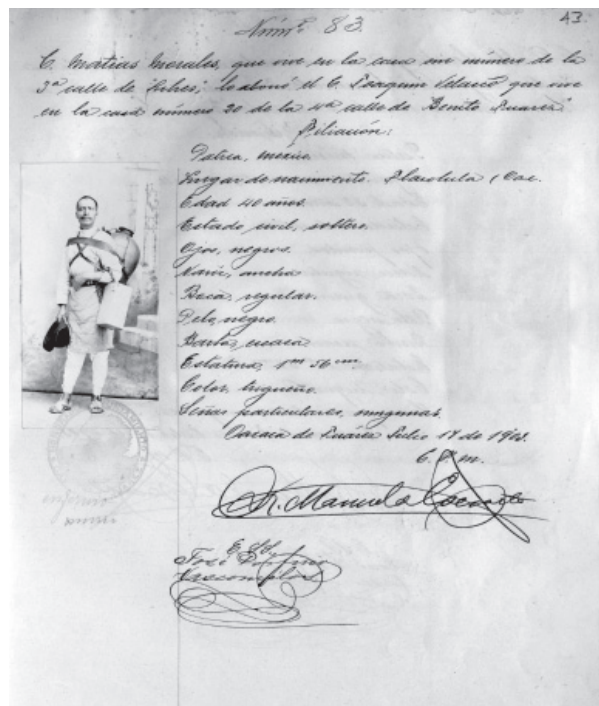 Núm.º 83.
43.
C. Matias Morales, que vive en la casa sin número de la
3ª calle de Libres; lo abonó el C. Joaquin Velasco que vive
en la casa número 20 de la 4ª calle de Benito Juarez.
Filiación:
Patria, México.
Lugar de nacimiento. Tlacolula, Oax.
Edad 40 años.
Estado civil, soltero.
Ojos, negros.
Nariz, ancha
Boca, regular.
Pelo, negro.
Barba, escasa
Estatura, 1m 56 cm.
Color, trigueño.
Señas particulares, ningunas.
Oaxaca de Juárez Julio 18 de 1903.
E. P. M.
M. Manuel
E. S.
José
Vasconcelos